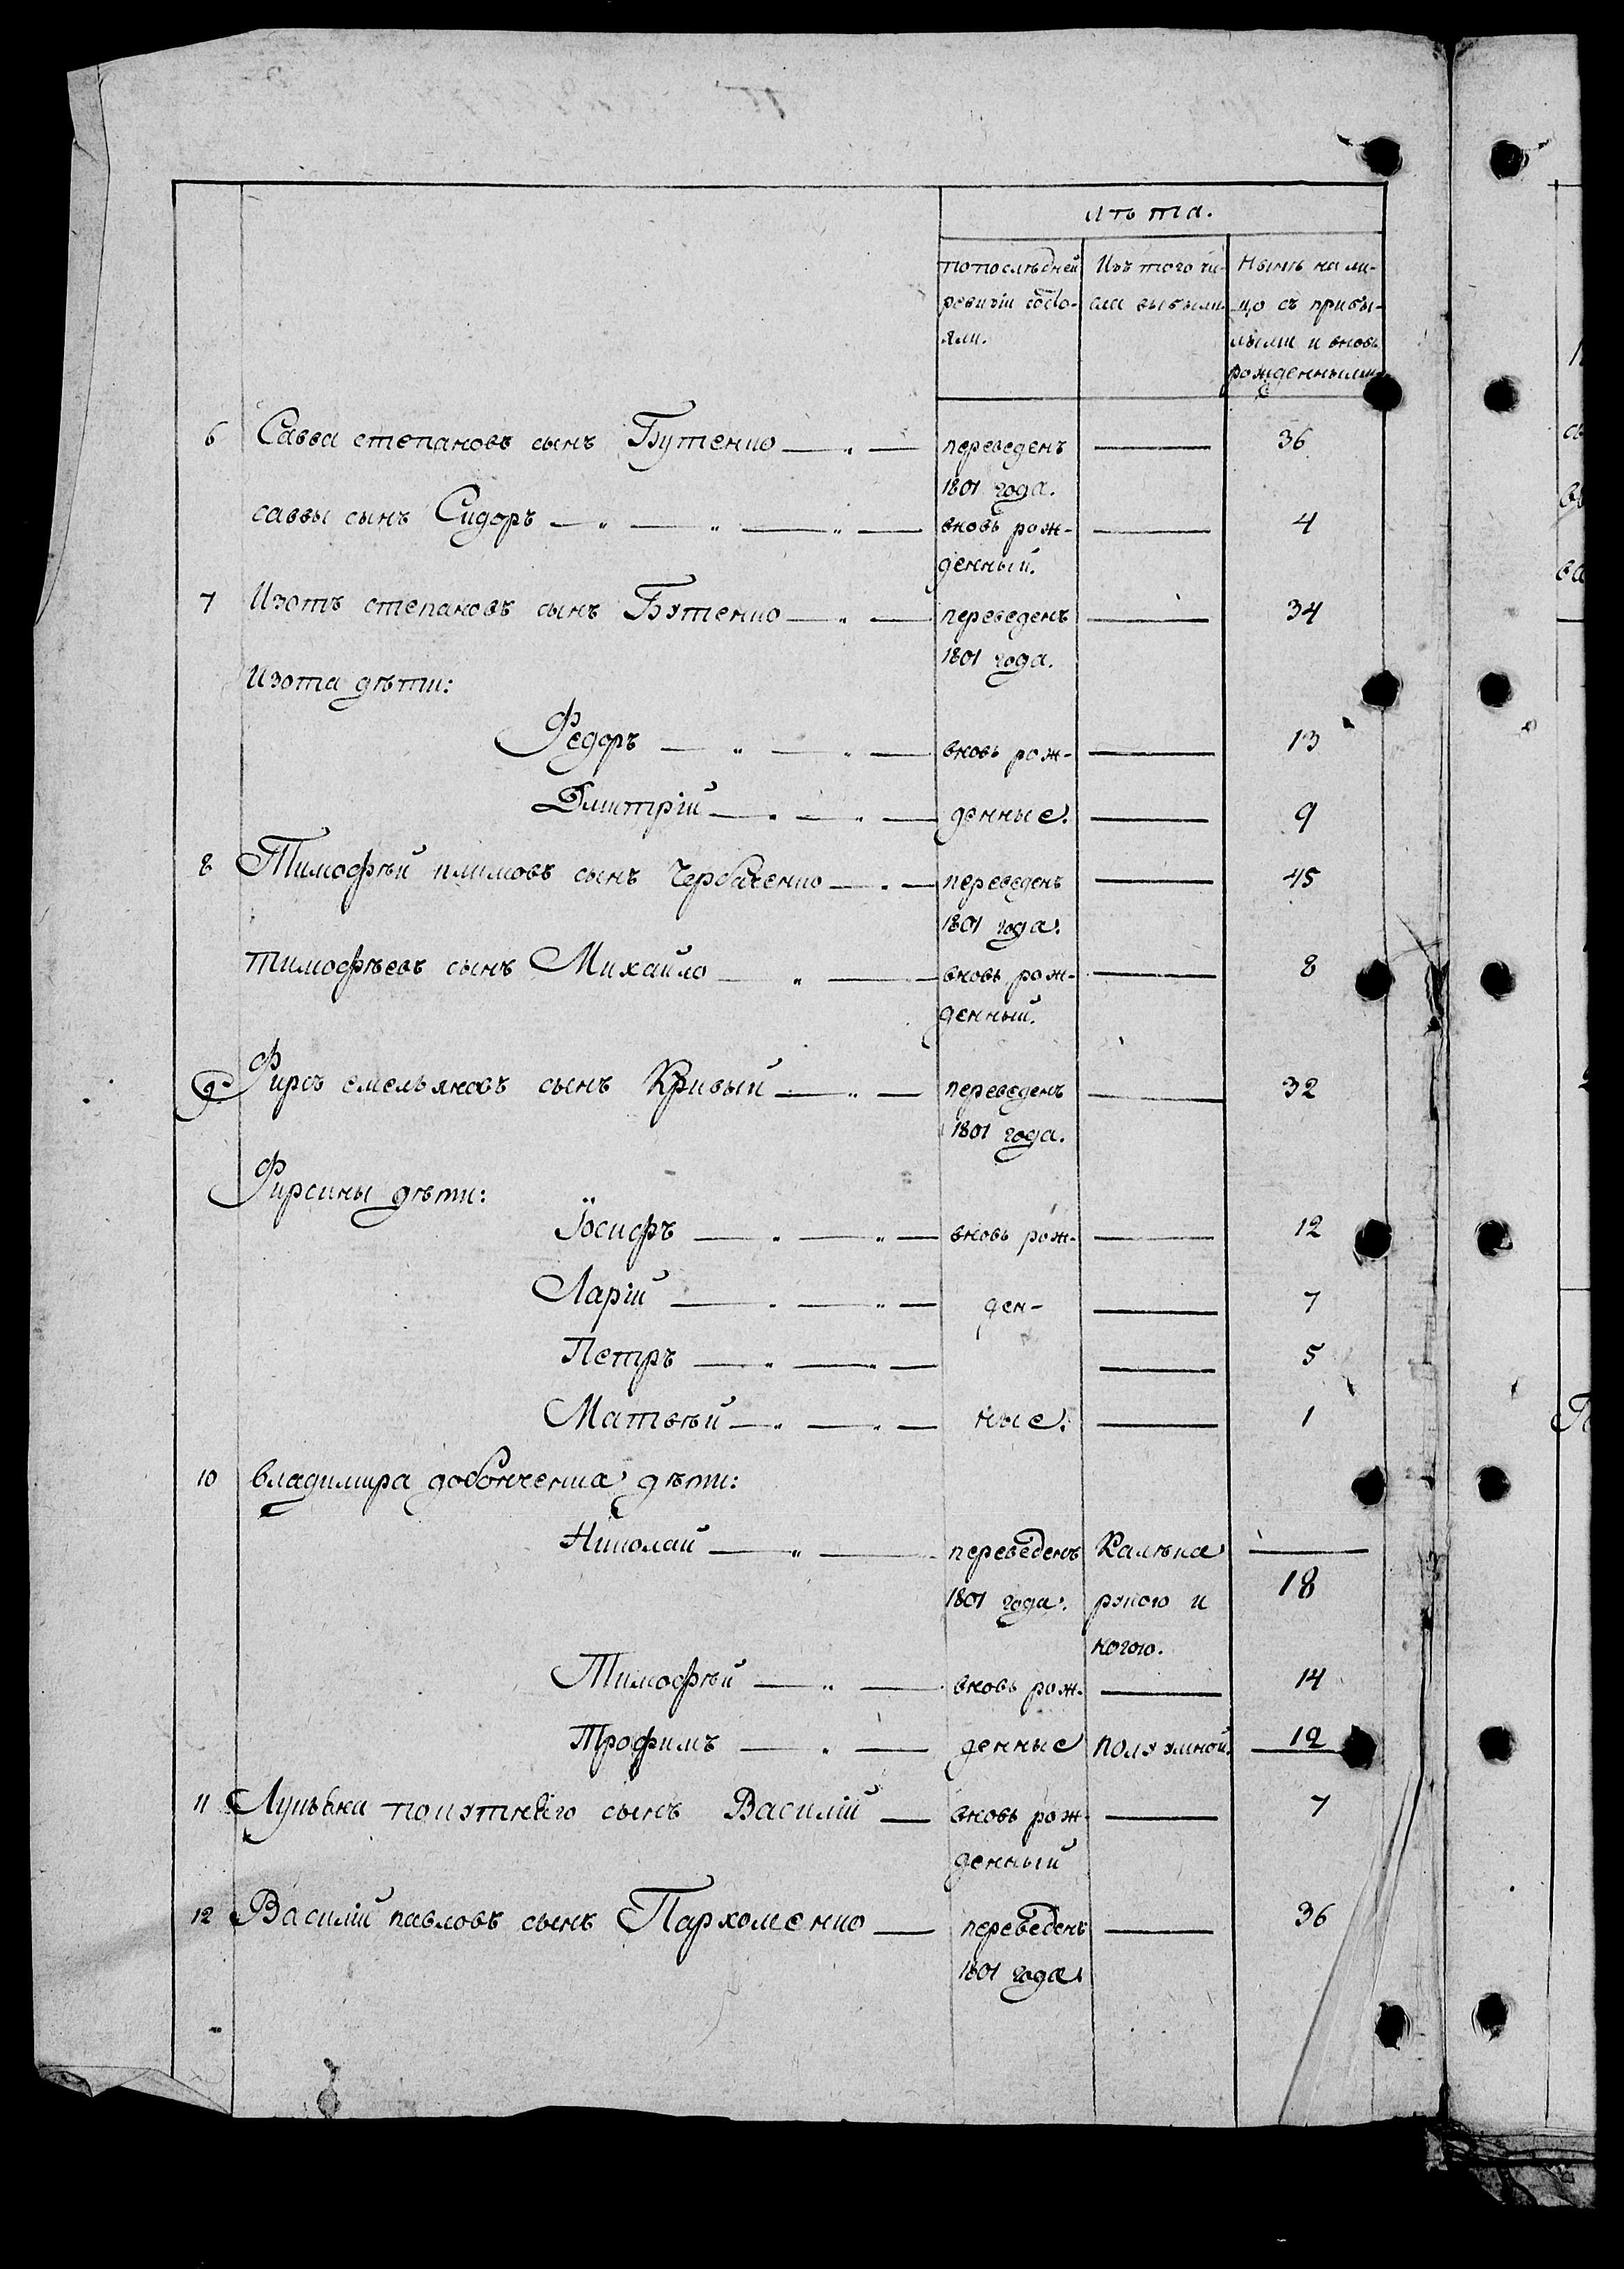 лѣта.
по последней Изъ того чи- Нынѣ на ли-
ревизіи состо- сла выбыли. цо съ прибы-
яли. лыми и вновь
рожденными
6 Савва степановъ сынъ Бутенко — „ — переведенъ — 36
1801 года.
саввы сынъ Сидоръ — „ — „ — „ — вновь рож- — 4
денный.
7 Изотъ степановъ сынъ Бутенко — „ — переведенъ — 34
1801 года.
Изота дѣти:
Федоръ — „ — „ — вновь рож- — 13
Дмитрій — „ — „ — денные. — 9
8 Тимофѣй климовъ сынъ — „ — переведенъ — 45
1801 года.
тимофѣевъ сынъ Михайло — „ — вновь рож- — 8
денный.
9 Фирсъ емельяновъ сынъ Кривый — „ — переведенъ — 32
1801 года.
Фирсины дѣти:
Іосифъ — „ — „ — вновь рож- — 12
Ларій — „ — „ — ден- — 7
Петръ — „ — „ — — 5
Матвѣй — „ — „ — ные. — 1
10 владимира дѣти:
Николай — „ — переведенъ Калѣка —
1801 года. рукою и 18
ногою.
Тимофѣй — „ — вновь рож- — 14
Трофимъ — „ — денные полуумной. 12
11 сынъ Василій — вновь рож- — 7
денный
12 Василій павловъ сынъ Пархоменко — переведенъ — 36
1801 года